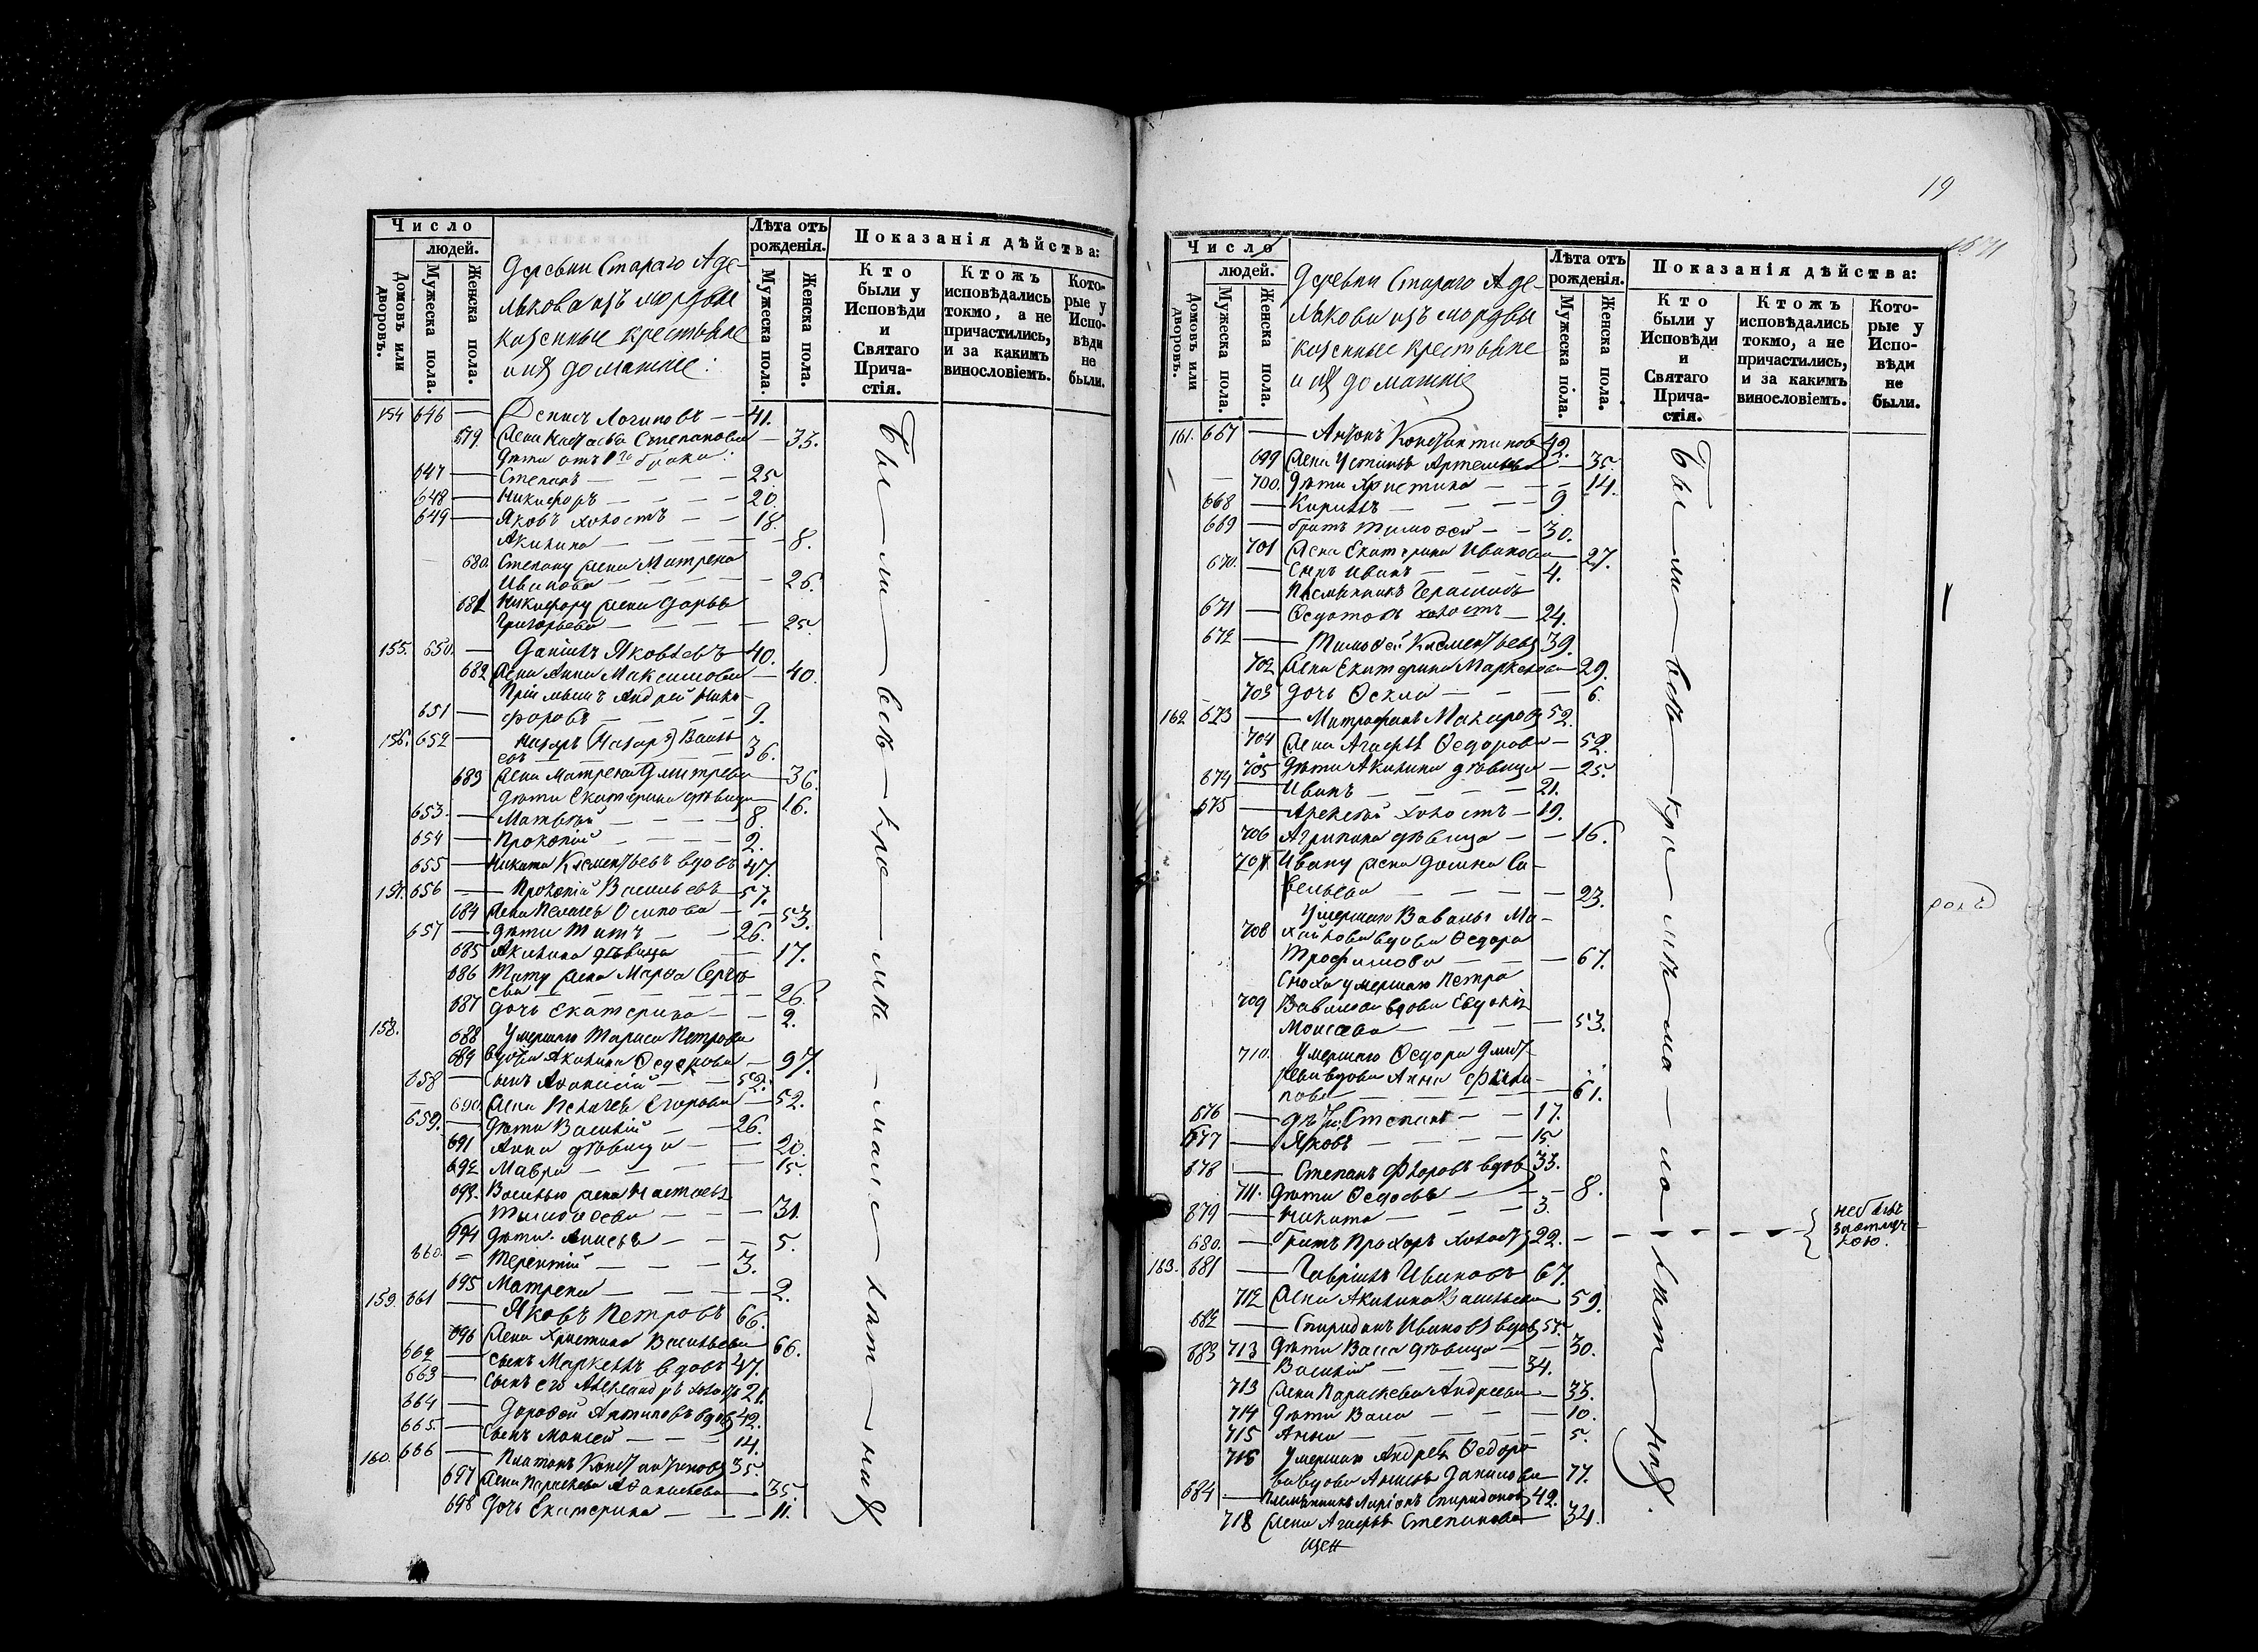 Число
людей.
Домовъ или дворовъ.
Мужеска пола.
Женска пола.
Деревни Стараго Аде-
лякова изъ мордвы
казенные крестьяне
и ихъ домашніе:
Лѣта отъ рожденія.
Мужеска пола.
Женска пола.
Показанія дѣйства:
Кто были у Исповѣди и Святаго Причастія.
Ктожъ исповѣдались токмо, а не причастились, и за какимъ винословіемъ.
Которые у Исповѣди не были.
154 646 — Денисъ Логиновъ — 41.
679 Жена Настасья Степанова — 35.
Дѣти отъ 1го брака:
647 — Степанъ — 25.
648 — Никифоръ — 20.
649 — Яковъ холостъ — 18.
Акилина — 8.
680. Степану жена Матрена
Иванова — 26.
681 Никифору жена Дарья
Григорьева — 25.
155. 650. — Даніилъ Яковлевъ — 40.
682 Жена Анна Максимова — 40.
Пріемышъ Андрей Ники-
651 — форовъ — 9.
156. 652 — Назаръ (Назарій) Василь-
евъ — 36.
683 Жена Матрена Дмитрева — 36.
Дѣти Екатерина дѣвица — 16.
653. — Матвѣй — 8.
654 — Прокопій — 2.
655 — Никита Клементьевъ вдовъ 47.
157. 656 — Прокопій Васильевъ — 57.
684 Жена Пелагея Осипова — 53.
657 — Дѣти Титъ — 26.
685 Акилина дѣвица — 17.
686 Титу жена Марфа Сергѣ-
ева — 26.
687 Дочь Екатерина — 2.
158. 688 Умершаго Тараса Петрова
689 вдова Акилина Ѳедорова — 97.
658 — Сынъ Аѳанасій — 52.
690. Жена Пелагея Егорова — 52.
659. — Дѣти Василій — 26.
691 Анна дѣвица — 20.
692 Мавра — 15.
693. Василью жена Настасья
Тимоѳеева — 31.
694 Дѣти Анисья — 5.
660. — Терентій — 3.
695 Матрена — 2.
159. 661 — Яковъ Петровъ 66.
696 Жена Христина Васильева 66.
662 — Сынъ Маркеллъ вдовъ 47.
663 — Сынъ его Александръ холостъ 21.
664 — Дороѳей Антиповъ вдовъ 42.
665. — Сынъ Моисей — 14.
160. 666 — Платонъ Константиновъ 35.
697 Жена Параскева Аѳанасьева — 35.
698 Дочь Екатерина — 11.
Бы — ли — всѣ — кро — мѣ — мало — лѣт — нихъ
19
Число
людей.
Домовъ или дворовъ.
Мужеска пола.
Женска пола.
Деревни Стараго Аде-
лякова изъ мордвы
казенные крестьяне
и ихъ домашніе
Лѣта отъ рожденія.
Мужеска пола.
Женска пола.
Показанія дѣйства:
Кто были у Исповѣди и Святаго Причастія.
Ктожъ исповѣдались токмо, а не причастились, и за какимъ винословіемъ.
Которые у Исповѣди не были.
161. 667 — Антонъ Константинов 42.
699 Жена Устинья Артемьева — 35.
700. Дѣти Христина — 14.
668 — Кирилъ — 9
669 — братъ Тимоѳей — 30.
701 Жена Екатерина Иванова — 27.
670. — Сынъ Иванъ — 4.
Племянникъ Герасимовъ
671 — Ѳедотовъ холостъ — 24.
672 — Тимоѳей Клементьевъ 39.
702 Жена Екатерина Маркелова — 29.
703 Дочь Ѳекла — 6.
162. 673 — Митрофанъ Макаровъ 52.
704 Жена Агафья Ѳедорова — 52.
705 Дѣти Акилина дѣвица — 25.
674 — Иванъ — 21.
675 — Алексѣй холостъ — 19.
706 Агрипина дѣвица — 16.
707. Ивану жена Домна Са-
вельева — 23.
Умершаго Вавилы Ми-
708 хайлова вдова Ѳедора
Трофимова — 67.
Сноха умершаго Петра
709 Вавилова вдова Евдокія
Моисеева — 53.
710. Умершаго Ѳедора Дмит-
рева вдова Анна Фили-
пова — 61.
676 — Дѣти: Степанъ — 17.
677 — Яковъ — 15
678 — Степанъ Фроловъ вдов 33.
711. Дѣти Ѳедосья — 8.
679 — Никита — 3.
680. — братъ Прохоръ холостъ 22.
не былъ
за отлуч-
кою.
163. 681 — Гавріилъ Ивановъ 67.
712 Жена Акилина Васильева 59.
682 — Спиридонъ Ивановъ вдовъ 57.
713 Дѣти Васса дѣвица — 30.
683 — Василій — 34.
713 Жена Параскева Андреева — 33.
714 Дѣти Васса — 10.
715 Анна — 5.
716 Умершаго Андрея Ѳедоро-
ва вдова Анисья Данилова — 77.
684 — Племянникъ Ларіонъ Спиридоновъ 42.
718 Жена Агафья Степанова — 34.
Бы — ли — всѣ — кро — мѣ — ма — ло — лѣт — нихъ.